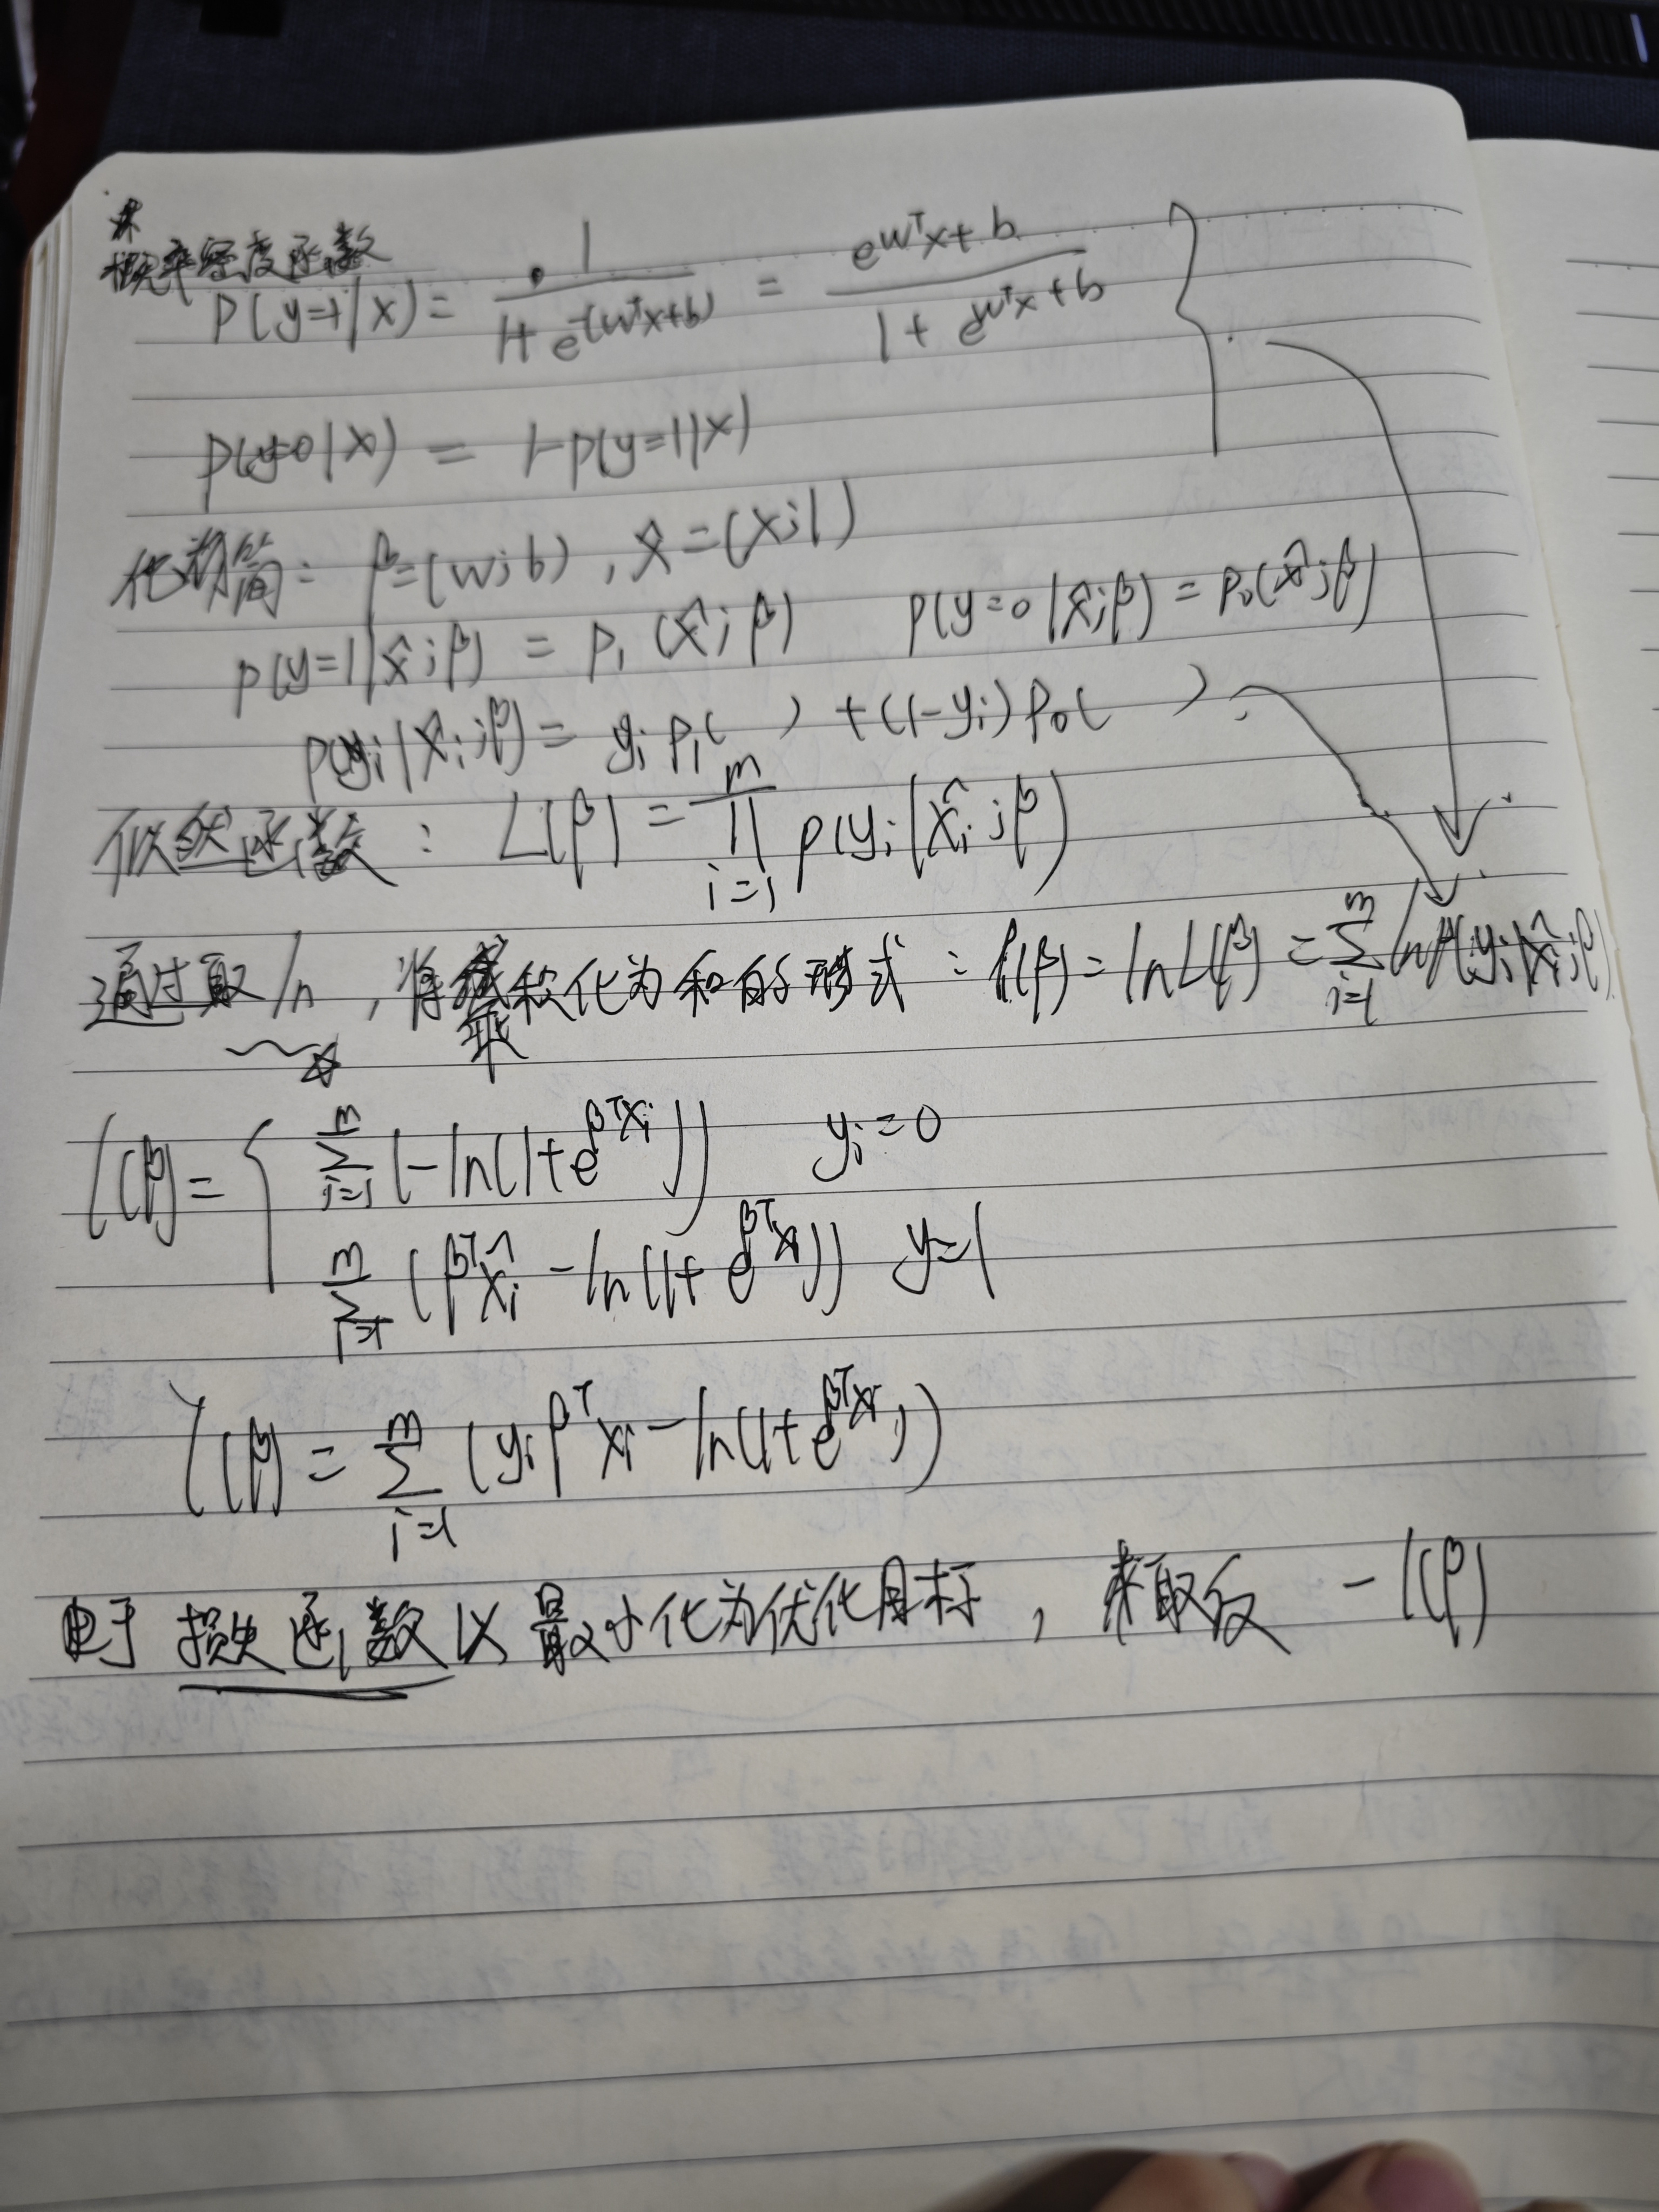 概率密度函数
P(y=1|x) = 1/(1+e^-(wᵀx+b)) = e^(wᵀx+b)/(1+e^(wᵀx+b))
p(y=0|x) = 1-p(y=1|x)
化简: β=(w;b), x̂=(x;1)
p(y=1|x̂;β) = p₁(x̂;β) p(y=0|x̂;β) = p₀(x̂;β)
p(yᵢ|x̂ᵢ;β) = yᵢ p₁( ) + (1-yᵢ) p₀( )
似然函数: L(β) = ∏_{i=1}^{m} p(yᵢ|x̂ᵢ;β)
通过取 ln, 将乘积化为和的形式: l(β) = ln L(β) = ∑_{i=1}^{m} ln p(yᵢ|x̂ᵢ;β)
l(β) = { ∑_{i=1}^{m} (-ln(1+e^(βᵀxᵢ))) yᵢ=0
∑_{i=1}^{m} (βᵀx̂ᵢ - ln(1+e^(βᵀxᵢ))) y=1
l(β) = ∑_{i=1}^{m} (yᵢβᵀxᵢ - ln(1+e^(βᵀxᵢ)))
由于损失函数以最小化为优化目标, 来取反 -l(β)